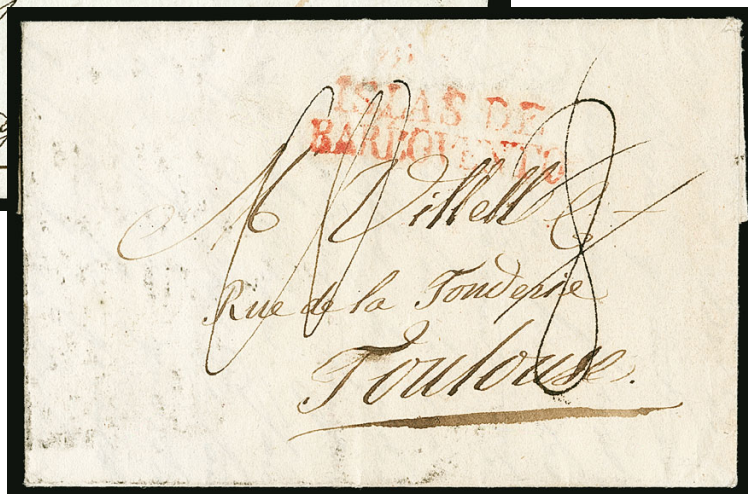 ISLAS DE
BARLOVENTO
M Villele
Rue de la Fonderie
Toulouse.
8